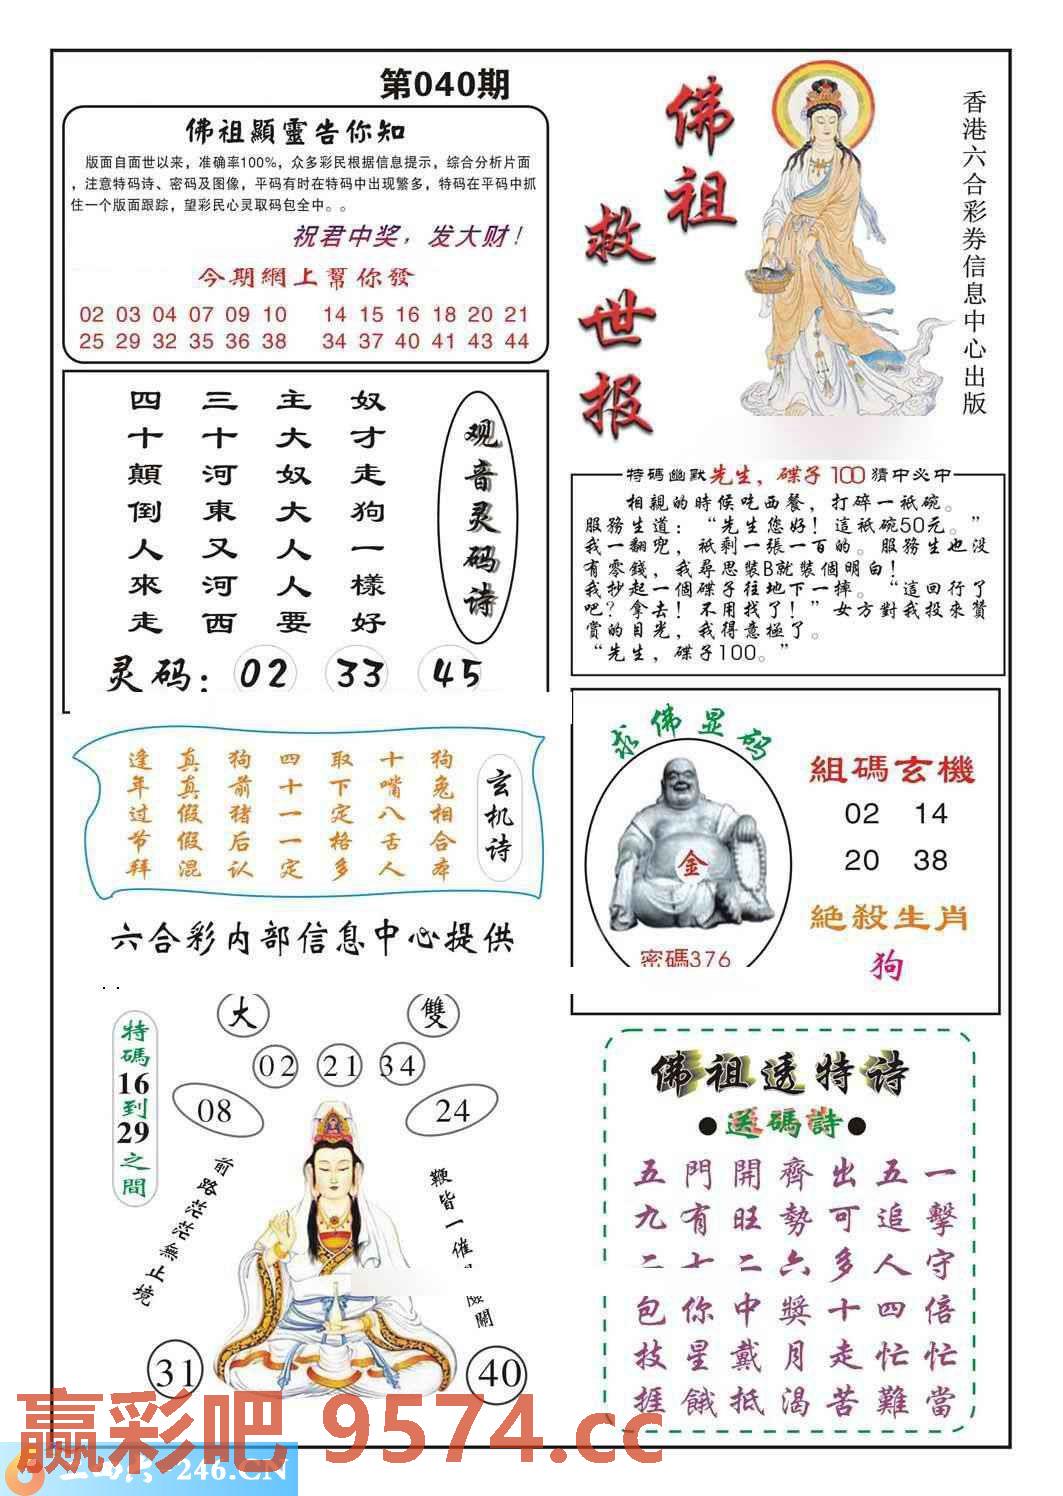 第040期
佛祖顯靈告你知
版面自面世以来，准确率100%，众多彩民根据信息提示，综合分析片面
，注意特码诗、密码及图像，平码有时在特码中出现繁多，特码在平码中抓
住一个版面跟踪，望彩民心灵取码包全中。。
祝君中奖，发大财！
今期網上幫你發
02 03 04 07 09 10 14 15 16 18 20 21
25 29 32 35 36 38 34 37 40 41 43 44
佛祖
救世报
香港六合彩券信息中心出版
观音灵码诗
奴才走狗一樣好
主大奴大人人要
三十河東又河西
四十顛倒人來走
灵码：02 33 45
特碼幽默先生，碟子100猜中必中
相親的時候吃西餐，打碎一祇碗。
服務生道：“先生您好！這祇碗50元。”
我一翻兜，祇剩一張一百的。服務生也没
有零錢，我尋思裝B就裝個明白！
我抄起一個碟子往地下一摔。“這回行了
吧？拿去！不用找了！”女方對我投來贊
賞的目光，我得意極了。
“先生，碟子100。”
玄机诗
狗兔相合本
十嘴八舌人
取下定格多
四十一一定
狗前猪后认
真真假假混
逢年过节拜
六合彩内部信息中心提供
求佛显码
金
密碼376
組碼玄機
02 14
20 38
絕殺生肖
狗
特碼16到29之間
大
雙
02 21 34
08
24
前路茫茫無止境
鞭皆一催
關
31
40
佛祖透特诗
●送碼詩●
五門開齊出五一
九有旺勢可追擊
二十二六多人守
包你中獎十四倍
技星戴月走忙忙
捱餓抵渴苦難當
赢彩吧 9574.cc
246.CN